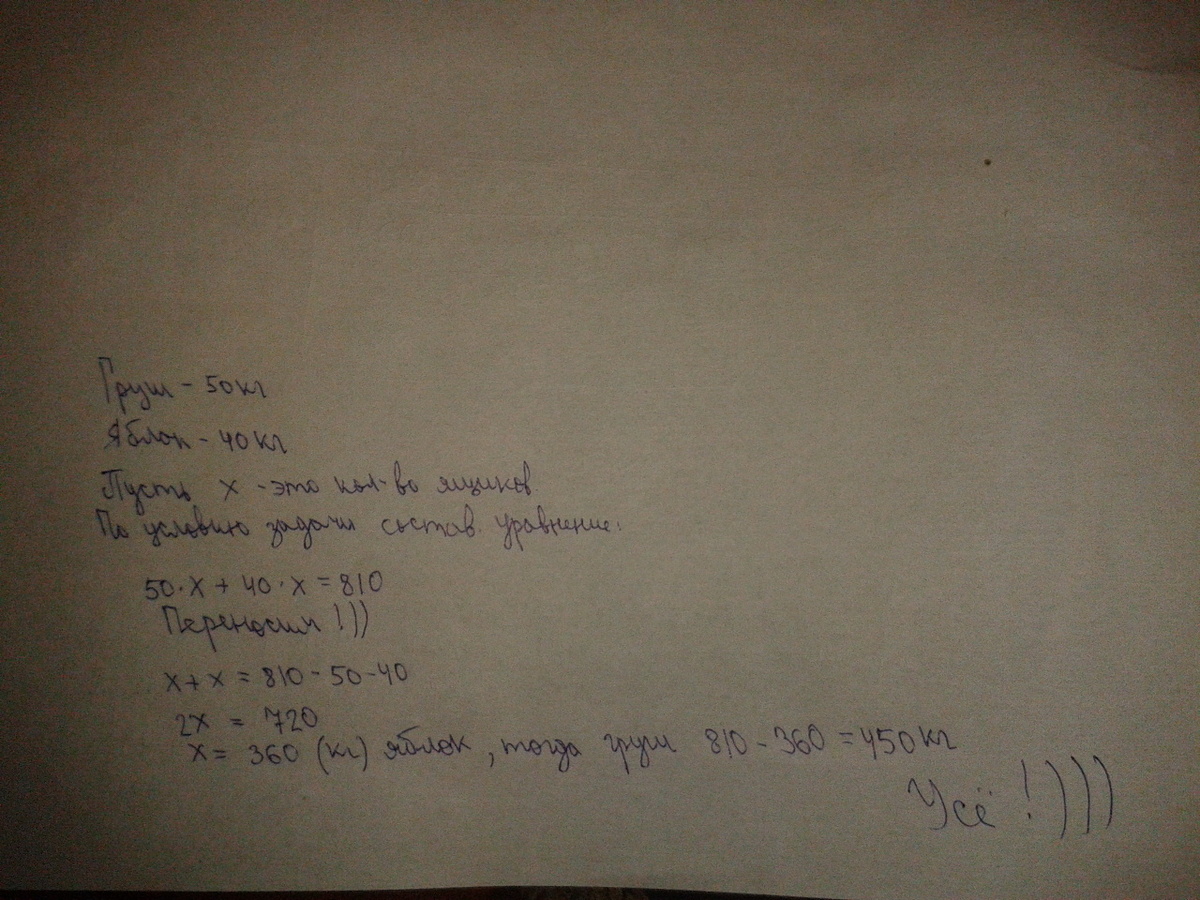 Груш - 50кг
Яблок - 40кг
Пусть х - это кол-во ящиков.
По условию задачи состав. уравнение:
50·х + 40·х = 810
Переносим!))
х + х = 810 - 50 - 40
2х = 720
х = 360 (кг) яблок, тогда груш 810 - 360 = 450кг
Усё!)))